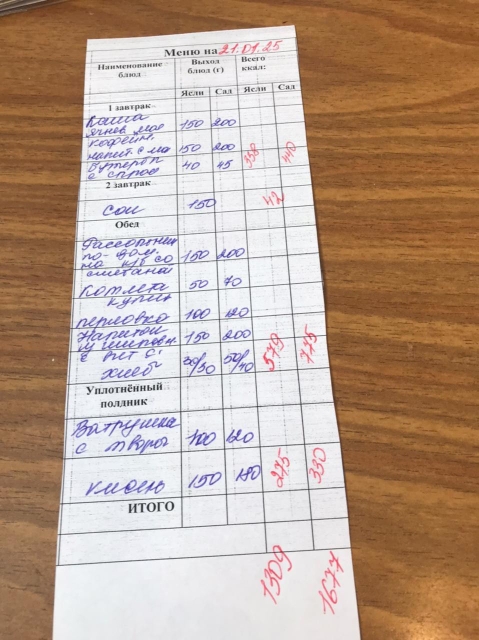 Меню на 21.01.25
Наименование блюд Выход блюд (г) Всего ккал:
Ясли Сад Ясли Сад
1 завтрак
Каша
ячнев. мол 150 200
кофейн.
напит. с мо 150 200
Бутерб
с 40 45 350 440
2 завтрак
сок 150 42
Обед
Рассольник
по-дом.
на к/б со 150 200
сметана
Котлета 50 70
куриц
перловка 100 120
Напиток
из шиповн. 150 200
с вит С.
хлеб 30/30 50/40 579 775
Уплотнённый
полдник
Ватрушка
с творог 100 120
кисель 150 180 275 330
ИТОГО
1309 1677